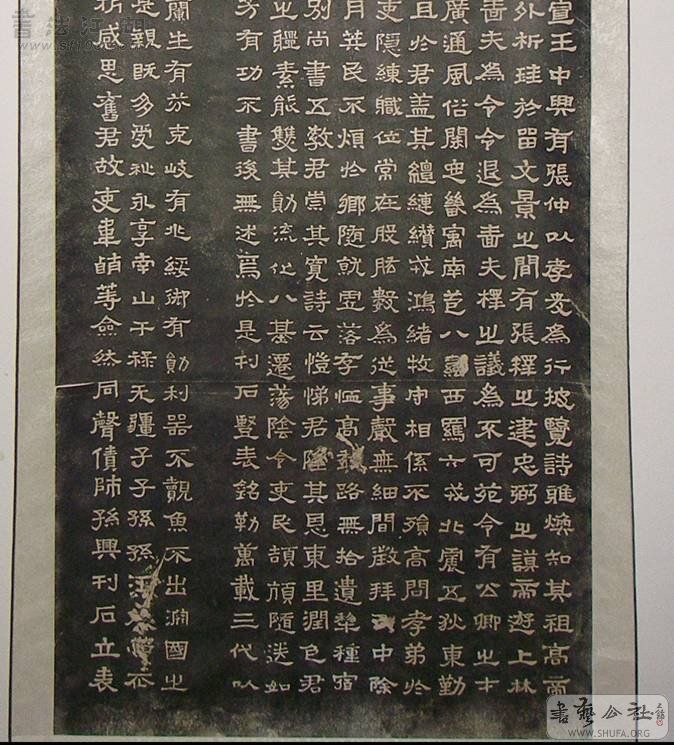 宣王中興有張仲以孝友為行披覽詩雅煥知其祖高帝
外析珪於留文景之間有張釋之建忠弼之謨帝遊上林
嗇夫為令令退為嗇夫釋之議為不可苑令有公卿之才
廣通風俗開定畿寓南苞八蠻西羈六戎北震五狄東勤
且於君蓋其繵縺纘戎鴻緒牧守相係不殞高問孝弟於
吏隱練職位常在股肱數為從事聲無細聞徵拜郎中除
月筭民不煩於鄉隨就虛落存恤高年路無拾遺犁種宿
別尚書五教君崇其寬詩云愷悌君隆其恩東里潤色君
之體素能雙其勛流化八基遷蕩陰令吏民頡頏隨送如
芳有功不書後無述焉於是刊石豎表銘勒萬載三代以
蘭生有芬克岐有兆綏御有勛利器不覿魚不出淵國之
是親既多受祉永享南山干祿无疆子子孫孫
感思舊君故吏韋萌等僉然同聲賃師孫興刊石立表
書法江湖
書藝公社
WWW.SHUFA.ORG